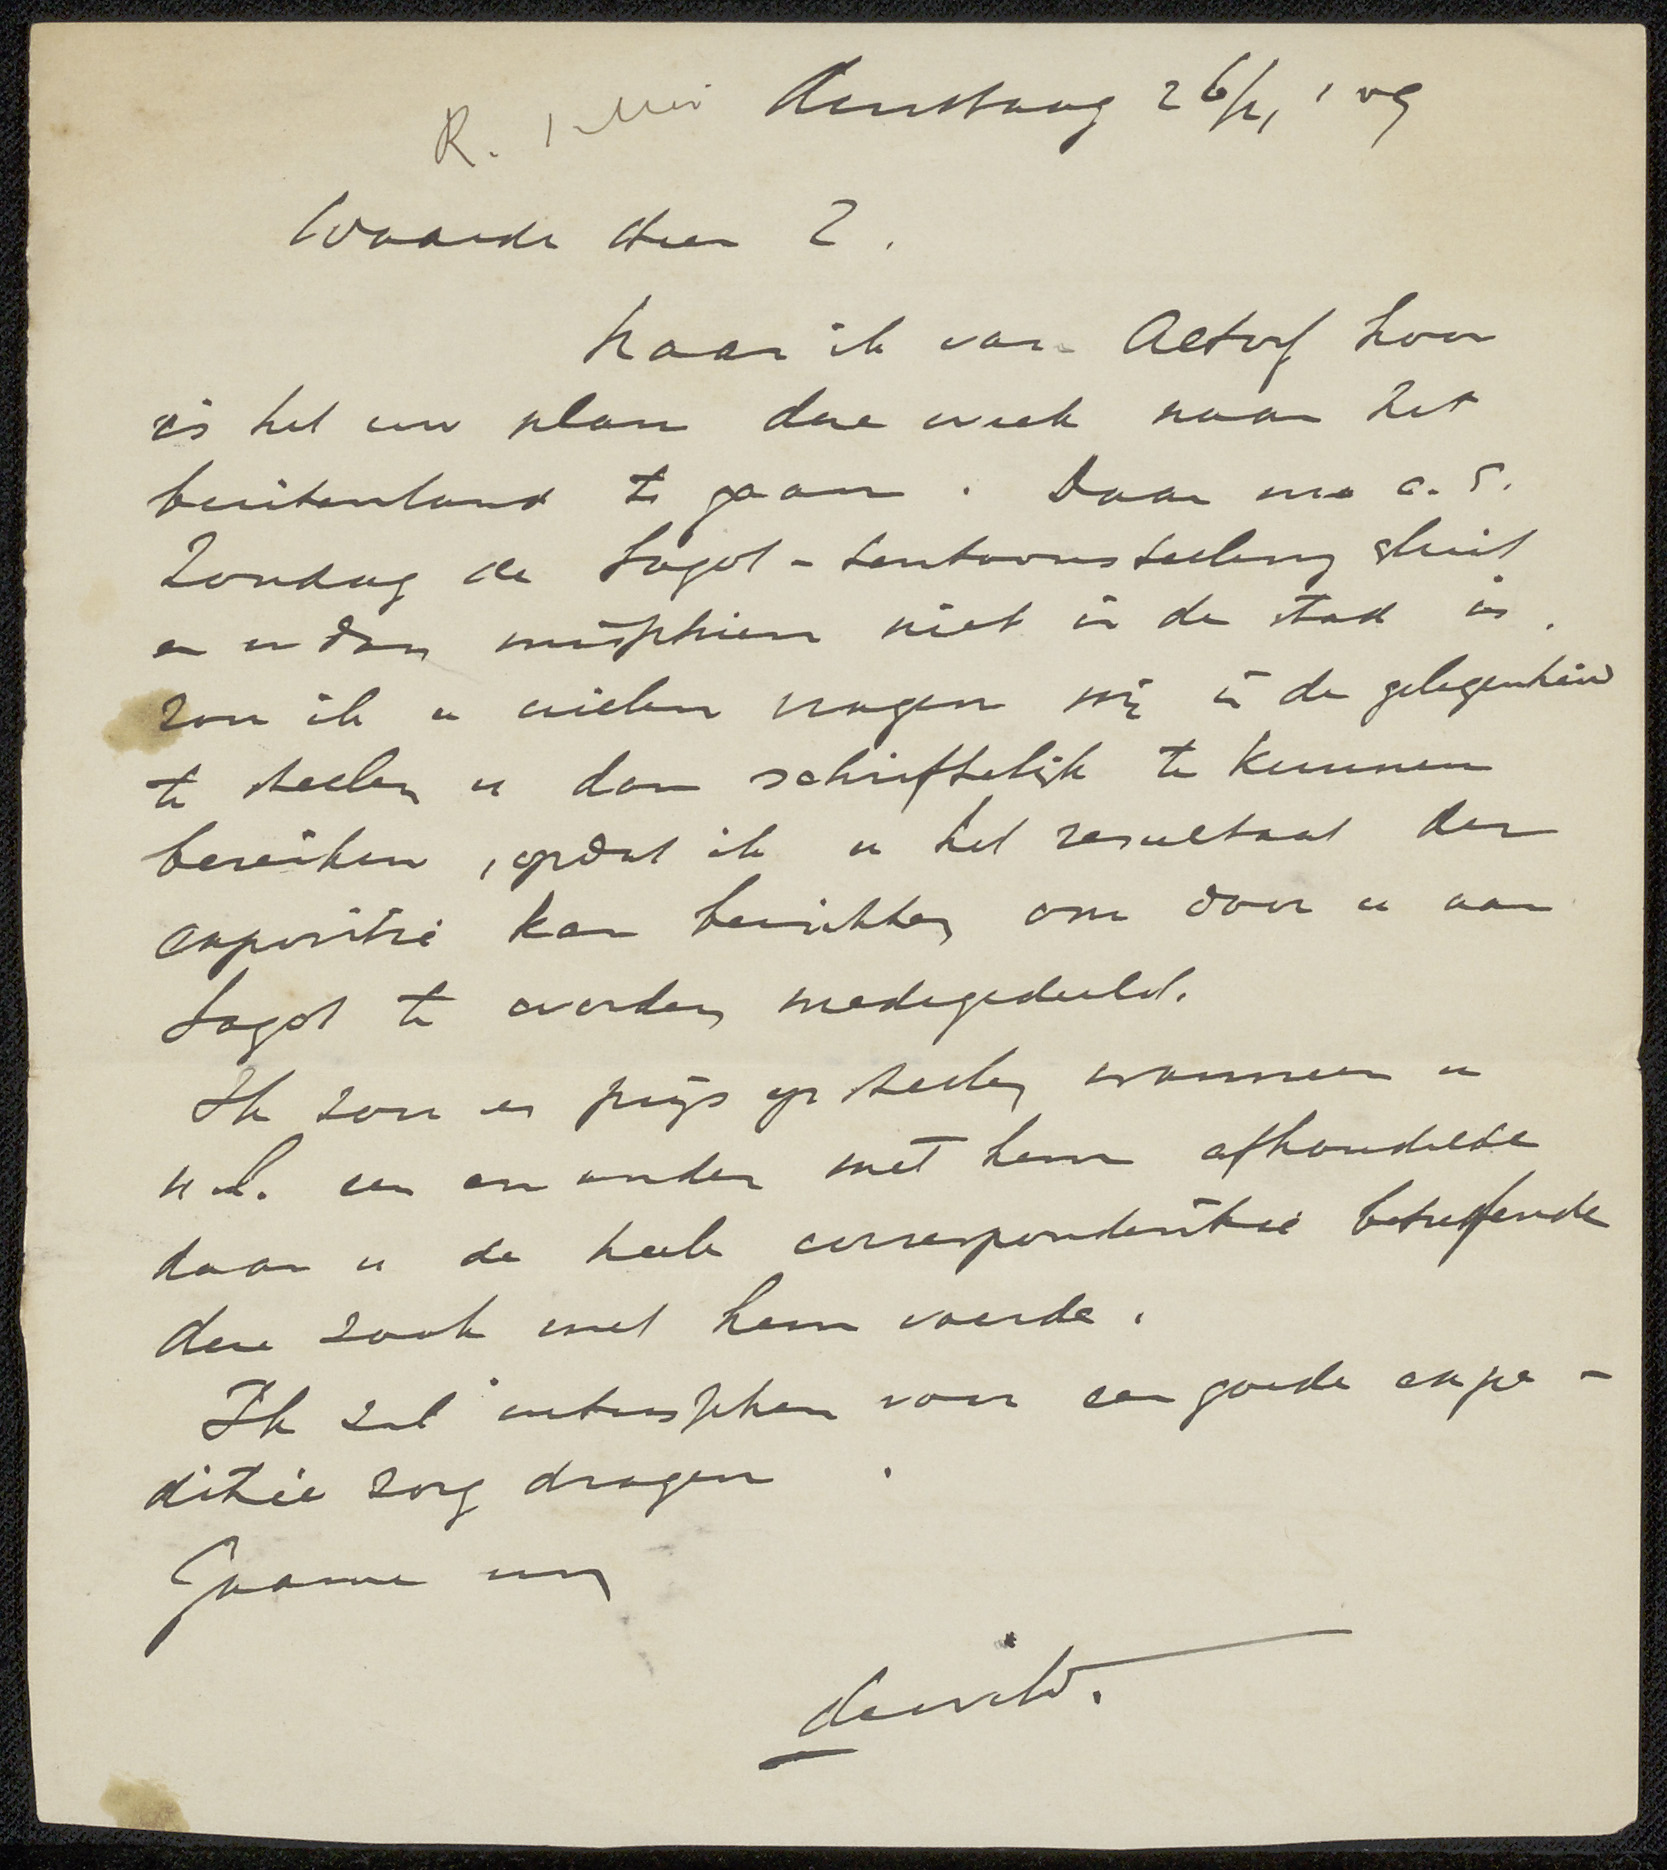 R. 1 Mei dinstaag 26/4, '09
Waarde Heer Z.
Naar ik van Altorf hoor
is het uw plan deze week naar het
buitenland te gaan. Daar nu a.s.
Zondag de Sagot-tentoonstelling sluit
en u dan misschien niet in de stad is,
zou ik u willen vragen mij in de gelegenheid
te stellen u dan schriftelijk te kunnen
bereiken, opdat ik u het resultaat der
expositie kan berichten om door u aan
Sagot te worden medegedeeld.
Ik zou er prijs op stellen wanneer u
een en ander met hem afhandelde
daar u de heele correspondentie betreffende
deze zaak met hem voerde.
Ik zal intusschen voor een goede expe-
ditie zorg dragen.
Gaarne uw
de Wild.